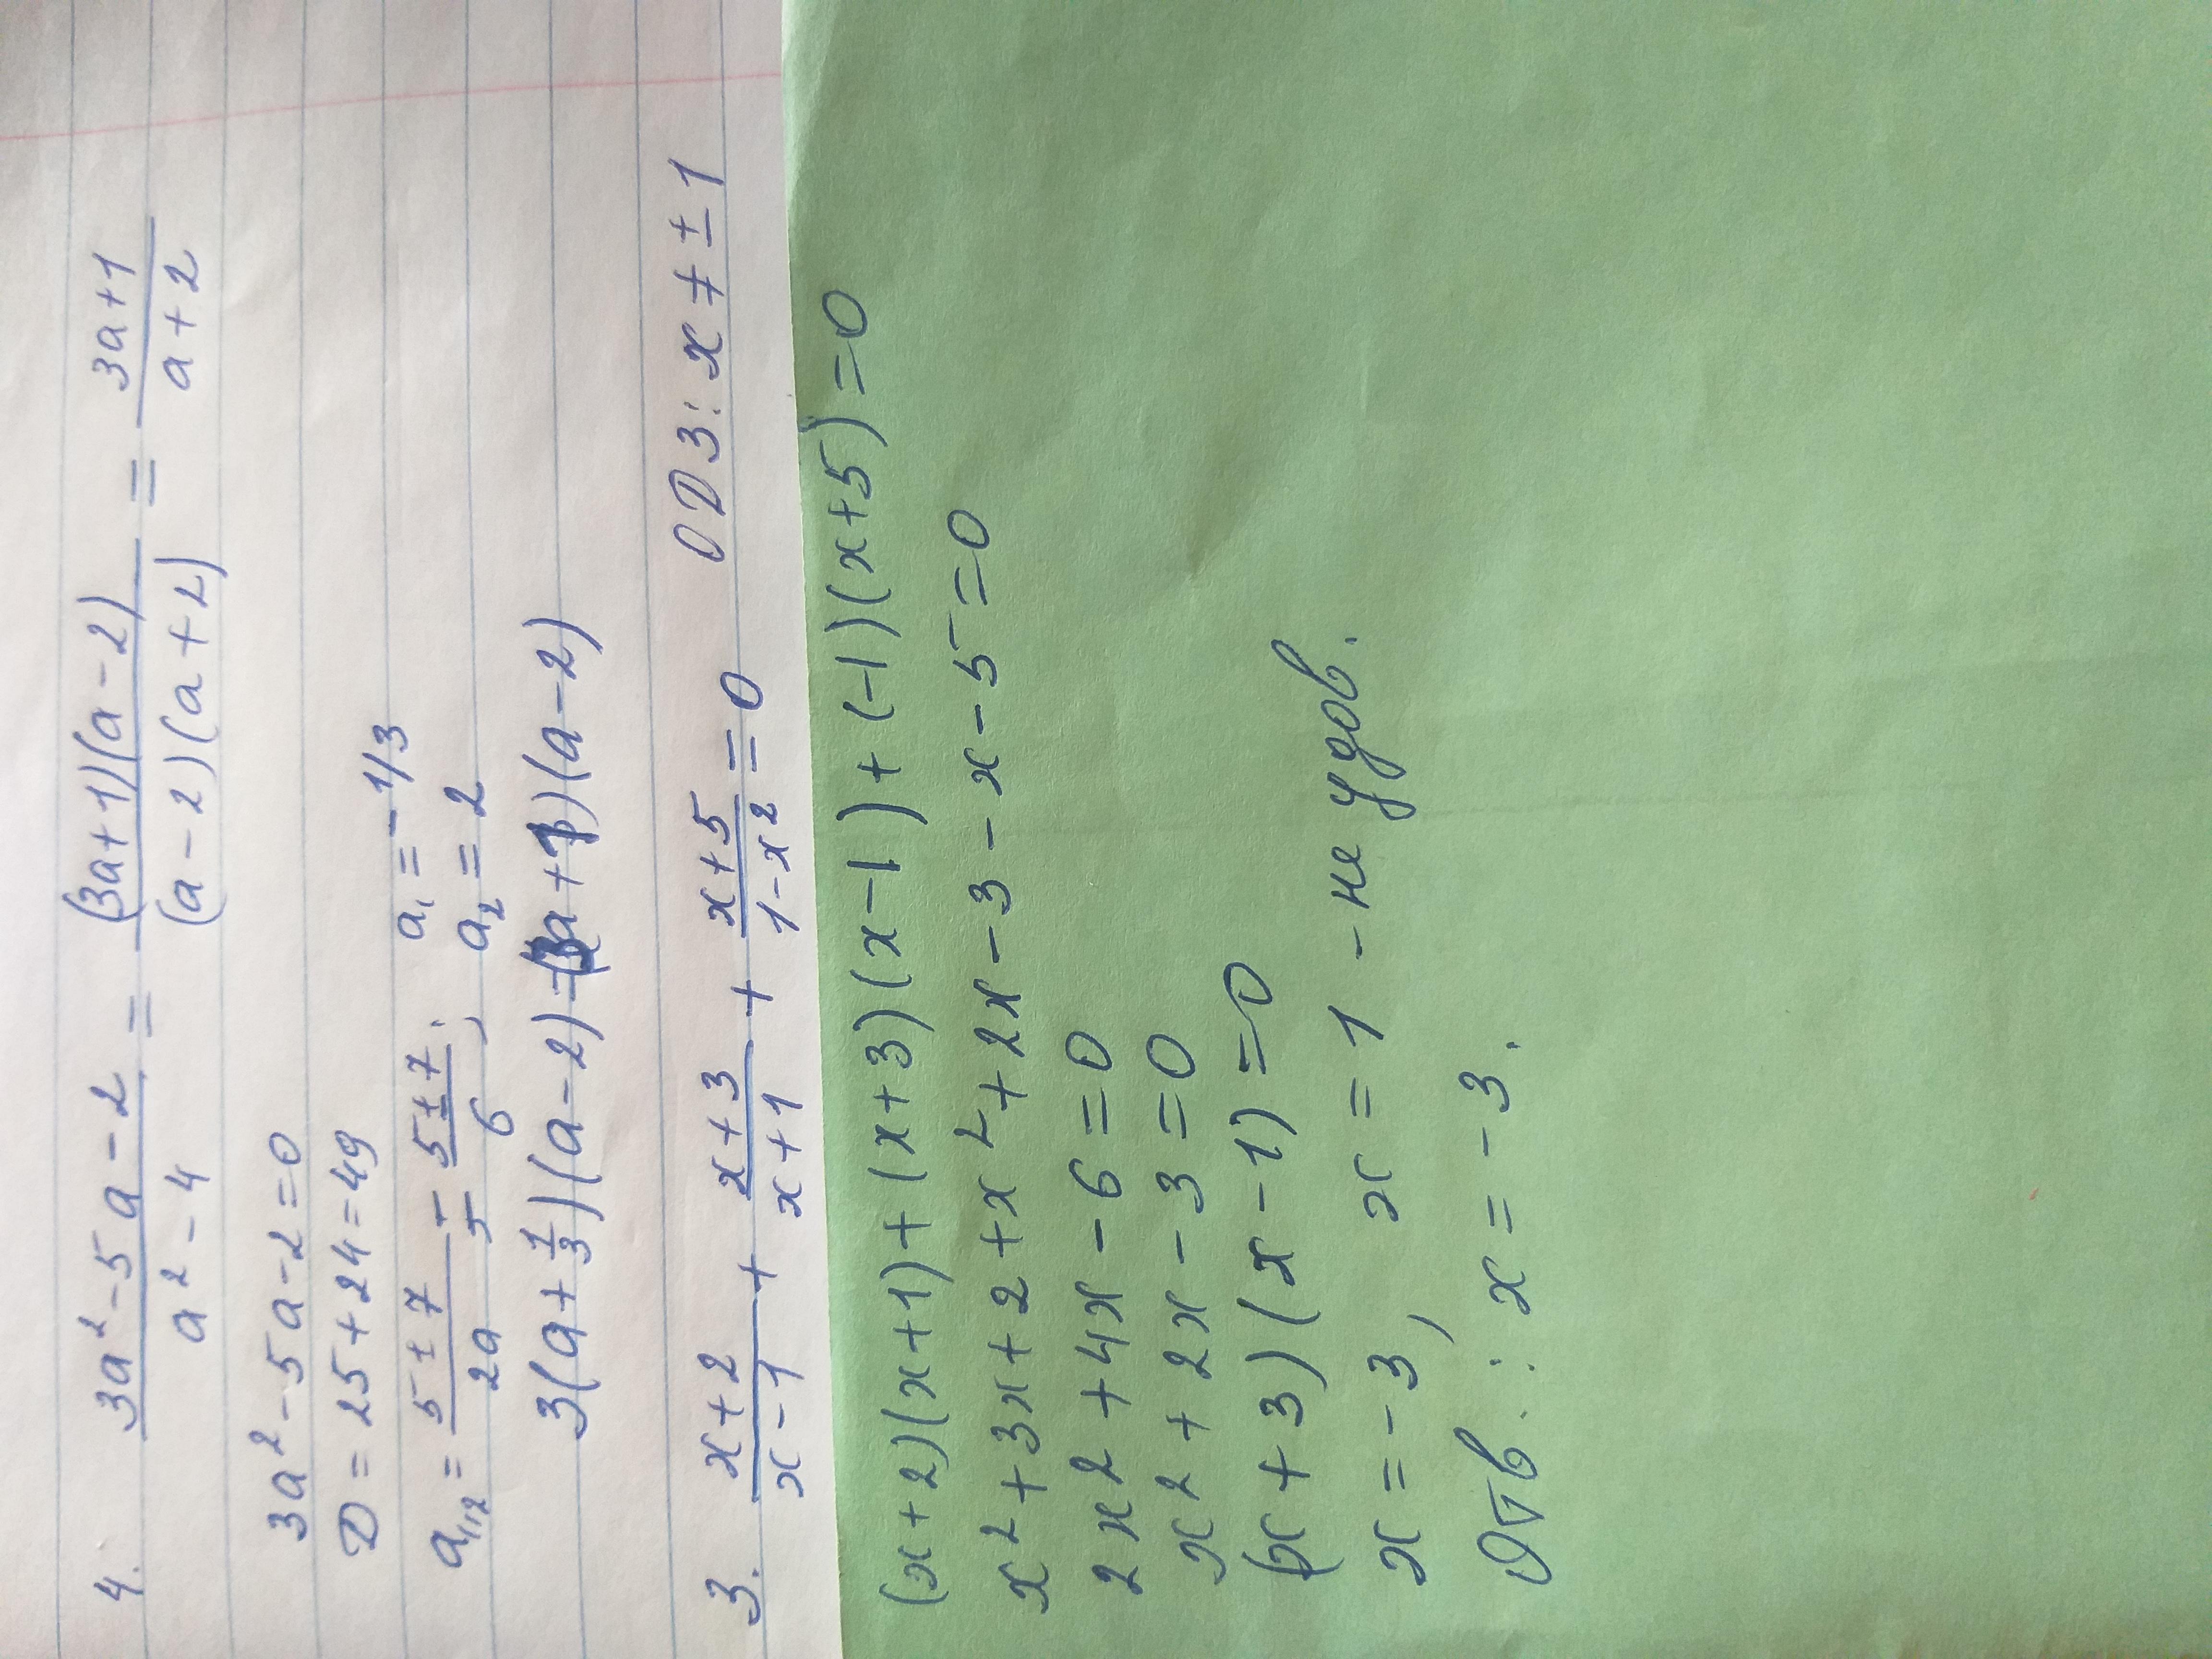 4. (3a² - 5a - 2)/(a² - 4) = ((3a+1)(a-2))/((a-2)(a+2)) = (3a+1)/(a+2)
3a² - 5a - 2 = 0
D = 25 + 24 = 49
a₁,₂ = (5 ± 7)/2a = (5 ± 7)/6; a₁ = -1/3
a₂ = 2
3(a + 1/3)(a - 2) = (3a + 1)(a - 2)
3. (x+2)/(x-1) + (x+3)/(x+1) + (x+5)/(1-x²) = 0 ОДЗ: x ≠ ± 1
(x+2)(x+1) + (x+3)(x-1) + (-1)(x+5) = 0
x² + 3x + 2 + x² + 2x - 3 - x - 5 = 0
2x² + 4x - 6 = 0
x² + 2x - 3 = 0
(x + 3)(x - 1) = 0
x = -3, x = 1 - не удов.
Отв.: x = -3.